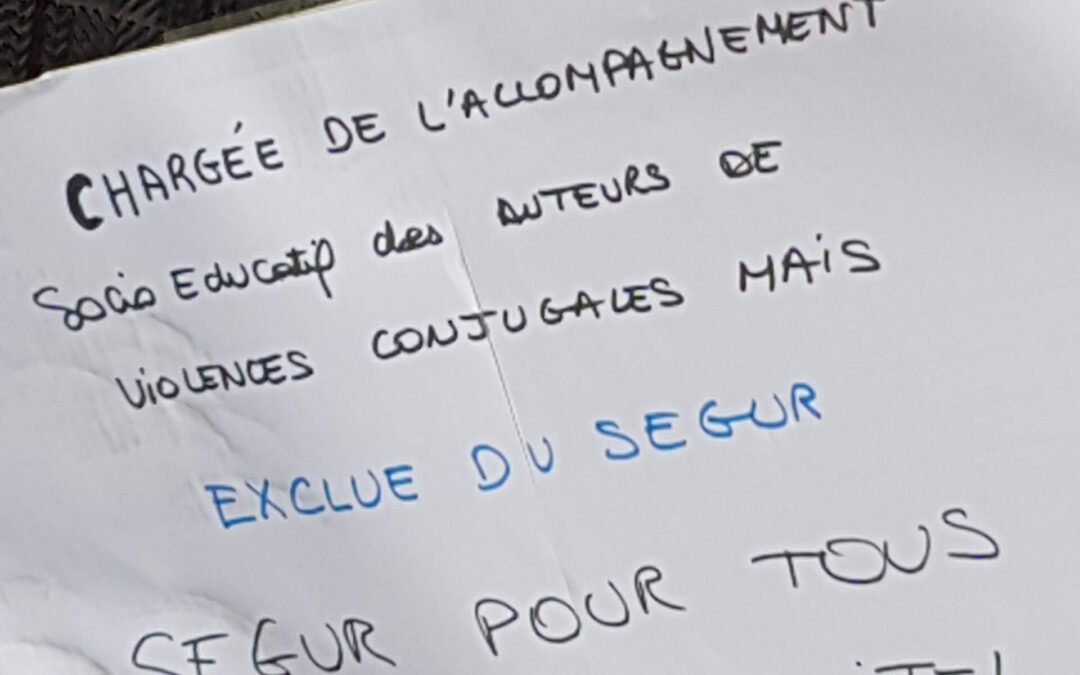 CHARGÉE DE L'ACCOMPAGNEMENT
Socio Educatif des AUTEURS DE
VIOLENCES CONJUGALES MAIS
EXCLUE DU SEGUR
SEGUR POUR TOUS